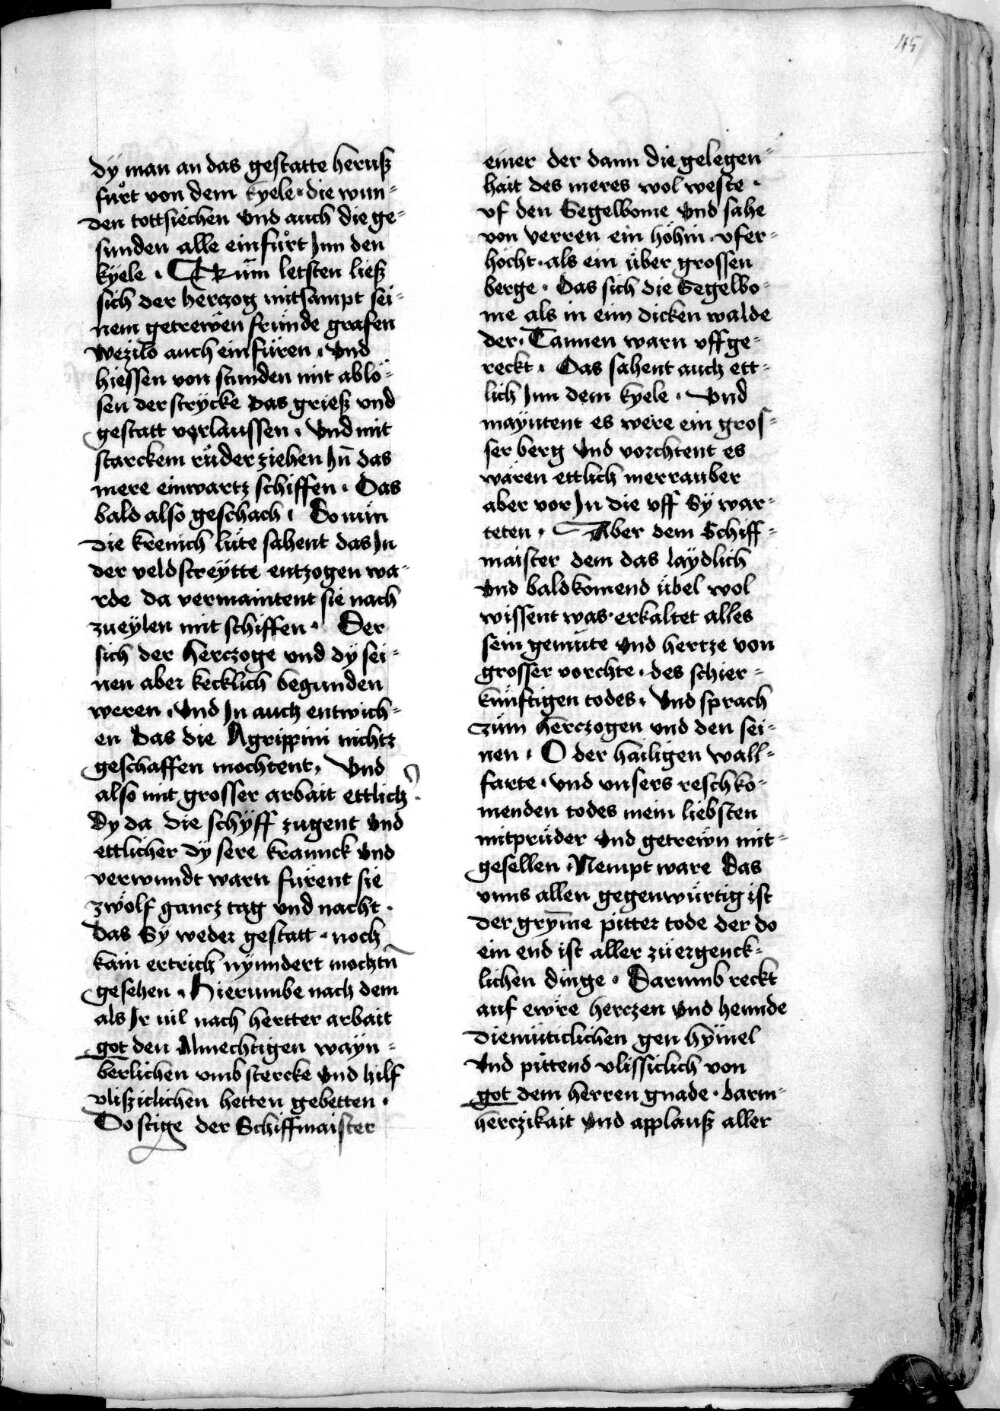 45
dÿ man an das gestatte herusz
fürt von dem kyele · die wun-
den tottsiechen vnd auch die ge-
sunden alle einfürt Jnn den
kÿele · Zum letsten liesz
sich der herczog mitsampt sei-
nem getrewen fründe grafen
wezilo auch einfüren · Vnd
hiessen von stunden mit ablö-
sen der strÿcke das griesz vnd
gestatt verlaussen · Vnd mit
starckem rüder ziehen Jn̄ das
mere einwartz schiffen · Das
bald also geschach · Do nün
die krenich lüte sahent das Jn
der veldstreÿtte entzogen wa-
rde da vermaintent sie nach
zueylen mit schiffen · Der
sich der herczoge vnd dÿ sei-
nen aber kecklich begunden
weren · Vnd Jn auch entwich-
en das die Agrippini nichtz
geschaffen mochtent, Vnd
also mit grosser arbait ettlich
dy da die schÿff zugent vnd
ettlicher dÿ sere krannck vnd
verwundt warn fürent sie
zwölf gancz tag vnd nacht ·
das Sy weder gestatt · noch
kain ertrich nÿnndert mochtn̄
gesehen · Hierumbe nach dem
als Jr vil nach hertter arbait
got den Almechtigen waÿn-
berlichen vmb stercke vnd hilf
vlisziclichen hetten gebetten ·
Do stige der Schiffmaister
einer der dann die gelegen-
hait des meres wol weste ·
vf den Segelbome vnd sahe
von verren ein höhin · vfer-
höcht · als ein über grossen
berge · Das sich die Segelbo-
me als in eim dicken walde
der · Tannen warn vffge-
reckt · Das sahent auch ett-
lich Jnn dem kyele · Vnd
maÿntent es were ein gros-
ser berg vnd vorchtent es
wären ettlich merrauber
aber vor Jn die vff Sÿ war-
teten · Aber dem Schiff-
maister dem das laÿdlich
vnd baldkomend übel wol
wissent was · erkaltet alles
sein gemüte vnd hertze von
grosser vorchte · des schier-
künftigen todes · Vnd sprach
züm herczogen vnd den sei-
nen · O der hailigen wall-
farte · vnd vnsers reschko-
menden todes mein liebsten
mitprüder vnd getrewn mit-
gesellen · Nempt ware das
vnns allen gegenwürtig ist
der grym̄e pitter tode der do
ein end ist aller zu ergenck-
lichen dinge · Darumb reckt
auf ewre herczen vnd hennde
diemüticlichen gen hÿmel
vnd pittend vlissiclich von
got dem herren gnade · barm-
herczikait vnd applausz aller